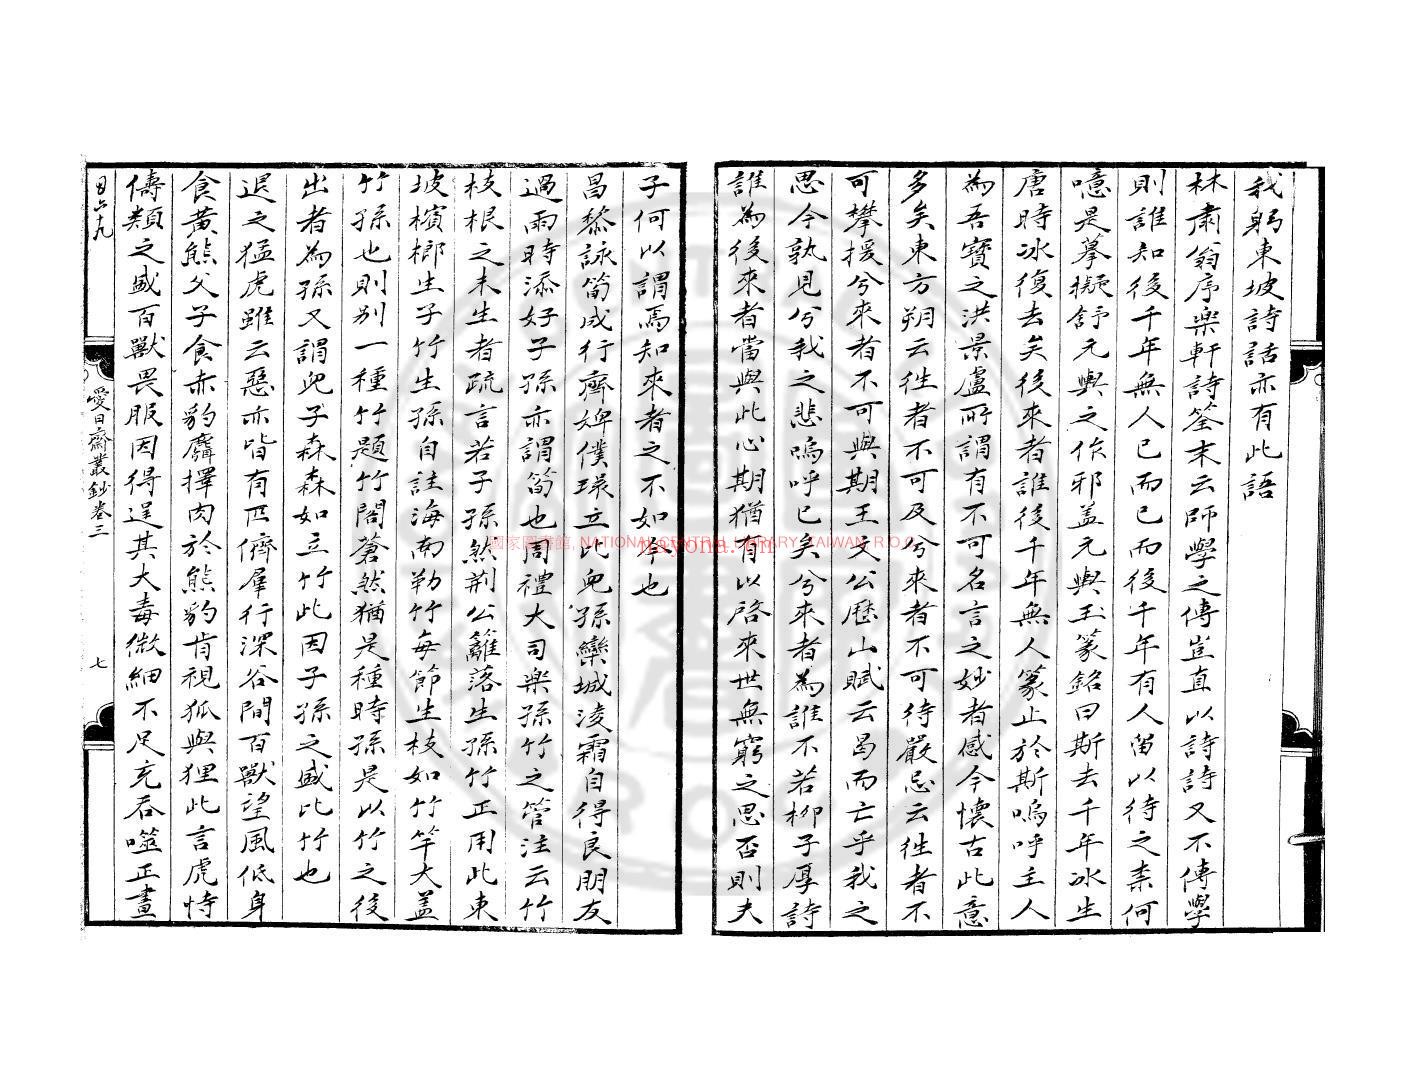 我躬東坡詩話亦有此語
林肅翁序樂軒詩筌末云師學之傳豈直以詩詩又不傳學
則誰知後千年無人已而已而後千年有人留以待之柰何
噫是摹擬舒元輿之作邪盖元輿玉篆銘曰斯去千年冰生
唐時冰復去矣後來者誰後千年無人篆止於斯嗚呼主人
為吾寶之洪景盧所謂有不可名言之妙者感今懷古此意
多矣東方朔云徃者不可及兮來者不可待嚴忌云徃者不
可攀援兮來者不可與期王文公歷山賦云曷而亡乎我之
思今孰見兮我之悲嗚呼已矣兮來者為誰不若柳子厚詩
誰為後來者當與此心期猶有以啓來世無窮之思否則夫
子何以謂焉知來者之不如今也
昌黎詠筍成行齊婢僕環立此兒孫欒城淩霜自得良朋友
過雨時添好子孫亦謂筍也周禮大司樂孫竹之管注云竹
枝根之未生者疏言若子孫然荆公籬落生孫竹正用此東
坡檳榔生子竹生孫自註海南勒竹每節生枝如竹竿大盖
竹孫也則别一種竹題竹閣蒼然猶是種時孫是以竹之後
出者為孫又謂兒子森森如立竹此因子孫之盛比竹也
退之猛虎雖云惡亦皆有匹儕羣行深谷間百獸望風低身
食黄熊父子食赤豹麛擇肉於熊豹肯視狐與狸此言虎恃
儔類之盛百獸畏服因得逞其大毒微細不足充吞噬正畫
愛日齋叢鈔卷三
七
國家圖書館, NATIONAL CENTRAL LIBRARY, TAIWAN, R.O.C.